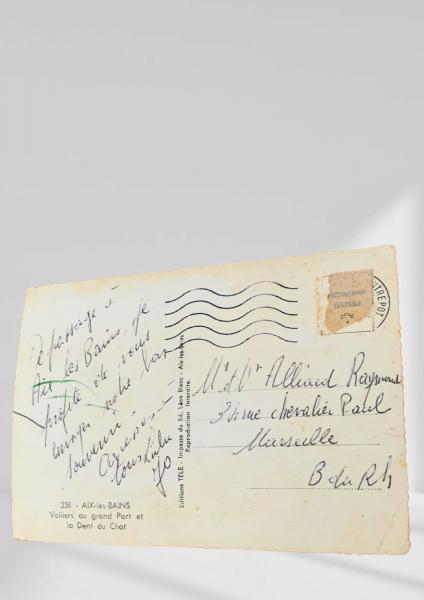 De passage à
Aix les Bains, je
profite de vous
envoyer notre bon
souvenir.
Jo
236 - AIX-les-BAINS
Voiliers au grand Port et
la Dent du Chat
Editions TÉLÉ - Impasse du Bd. Léon Blanc - Aix-les-Bains
Reproduction Interdite.
Mr et Mme Alliaud Raymond
rue chevalier Paul
Marseille
B du Rh